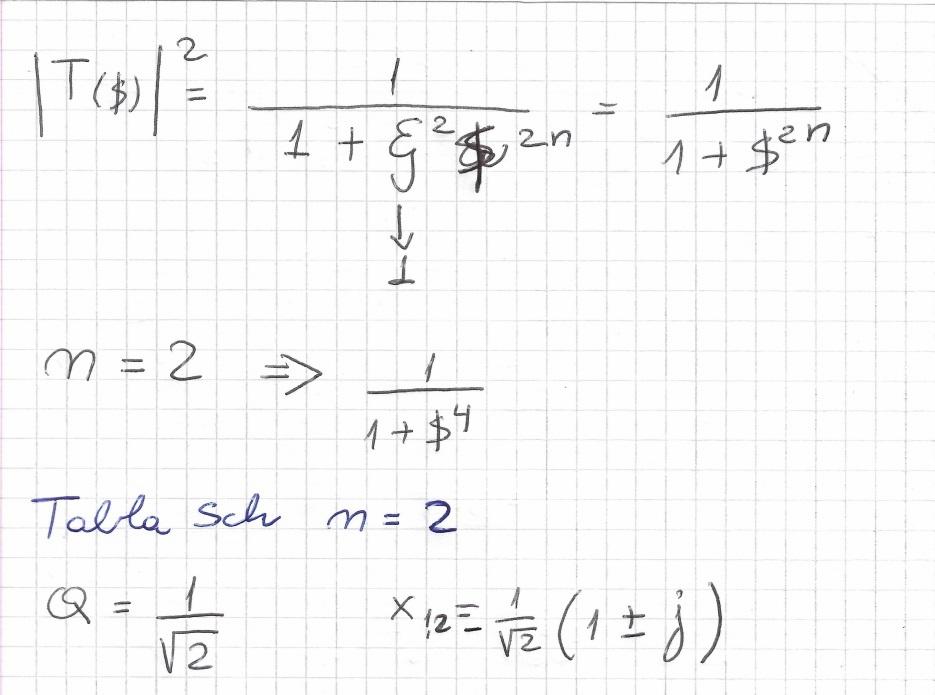 |T($)|² = 1 / (1 + ξ² $²ⁿ) = 1 / (1 + $²ⁿ)
↓
1
n = 2 ⇒ 1 / (1 + $⁴)
Tabla Sch n = 2
Q = 1 / √2 x₁,₂ = 1/√2 (1 ± j)